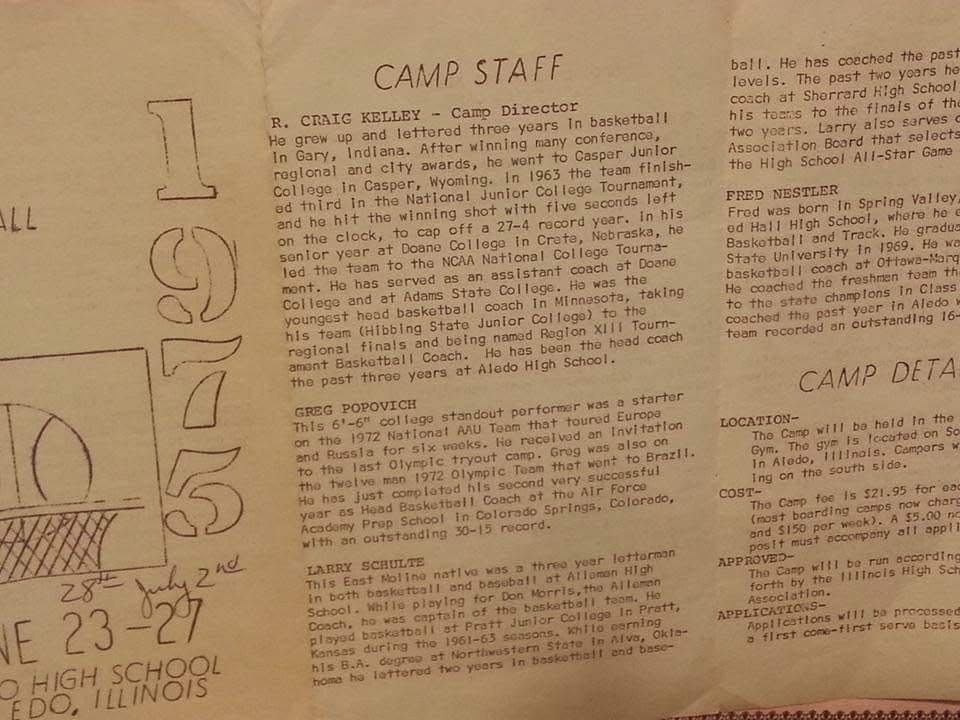 ALL
1
9
7
5
28th July 2nd
NE 23-27
O HIGH SCHOOL
EDO, ILLINOIS
CAMP STAFF
R. CRAIG KELLEY - Camp Director
He grew up and lettered three years in basketball
in Gary, Indiana. After winning many conference,
regional and city awards, he went to Casper Junior
College in Casper, Wyoming. In 1963 the team finish-
ed third in the National Junior College Tournament,
and he hit the winning shot with five seconds left
on the clock, to cap off a 27-4 record year. In his
senior year at Doane College in Crete, Nebraska, he
led the team to the NCAA National College Tourna-
ment. He has served as an assistant coach at Doane
College and at Adams State College. He was the
youngest head basketball coach in Minnesota, taking
his team (Hibbing State Junior College) to the
regional finals and being named Region XIII Tourn-
ament Basketball Coach. He has been the head coach
the past three years at Aledo High School.
GREG POPOVICH
This 6'-6" college standout performer was a starter
on the 1972 National AAU Team that toured Europe
and Russia for six weeks. He received an invitation
to the last Olympic tryout camp. Greg was also on
the twelve man 1972 Olympic Team that went to Brazil.
He has just completed his second very successful
year as Head Basketball Coach at the Air Force
Academy Prep School in Colorado Springs, Colorado,
with an outstanding 30-15 record.
LARRY SCHULTE
This East Moline native was a three year letterman
in both basketball and baseball at Alleman High
School. While playing for Don Morris, the Alleman
Coach, he was captain of the basketball team. He
played basketball at Pratt Junior College in Pratt,
Kansas during the 1961-63 seasons. While earning
his B.A. degree at Northwestern State in Alva, Okla-
homa he lettered two years in basketball and base-
ball. He has coached the past
levels. The past two years he
coach at Sherrard High School
his teams to the finals of the
two years. Larry also serves
Association Board that selects
the High School All-Star Game
FRED NESTLER
Fred was born in Spring Valley,
ed Hall High School, where he
Basketball and Track. He gradua
State University in 1969. He wa
basketball coach at Ottawa-Marq
He coached the freshmen team th
to the state champions in Class
coached the past year in Aledo w
team recorded an outstanding 16-
CAMP DETA
LOCATION-
The Camp will be held in the
Gym. The gym is located on So
in Aledo, Illinois. Campers w
ing on the south side.
COST-
The Camp fee is $21.95 for eac
(most boarding camps now charg
and $150 per week). A $5.00 no
posit must accompany all appli
APPROVED-
The Camp will be run according
forth by the Illinois High Scho
Association.
APPLICATIONS-
Applications will be processed
a first come-first serve basis